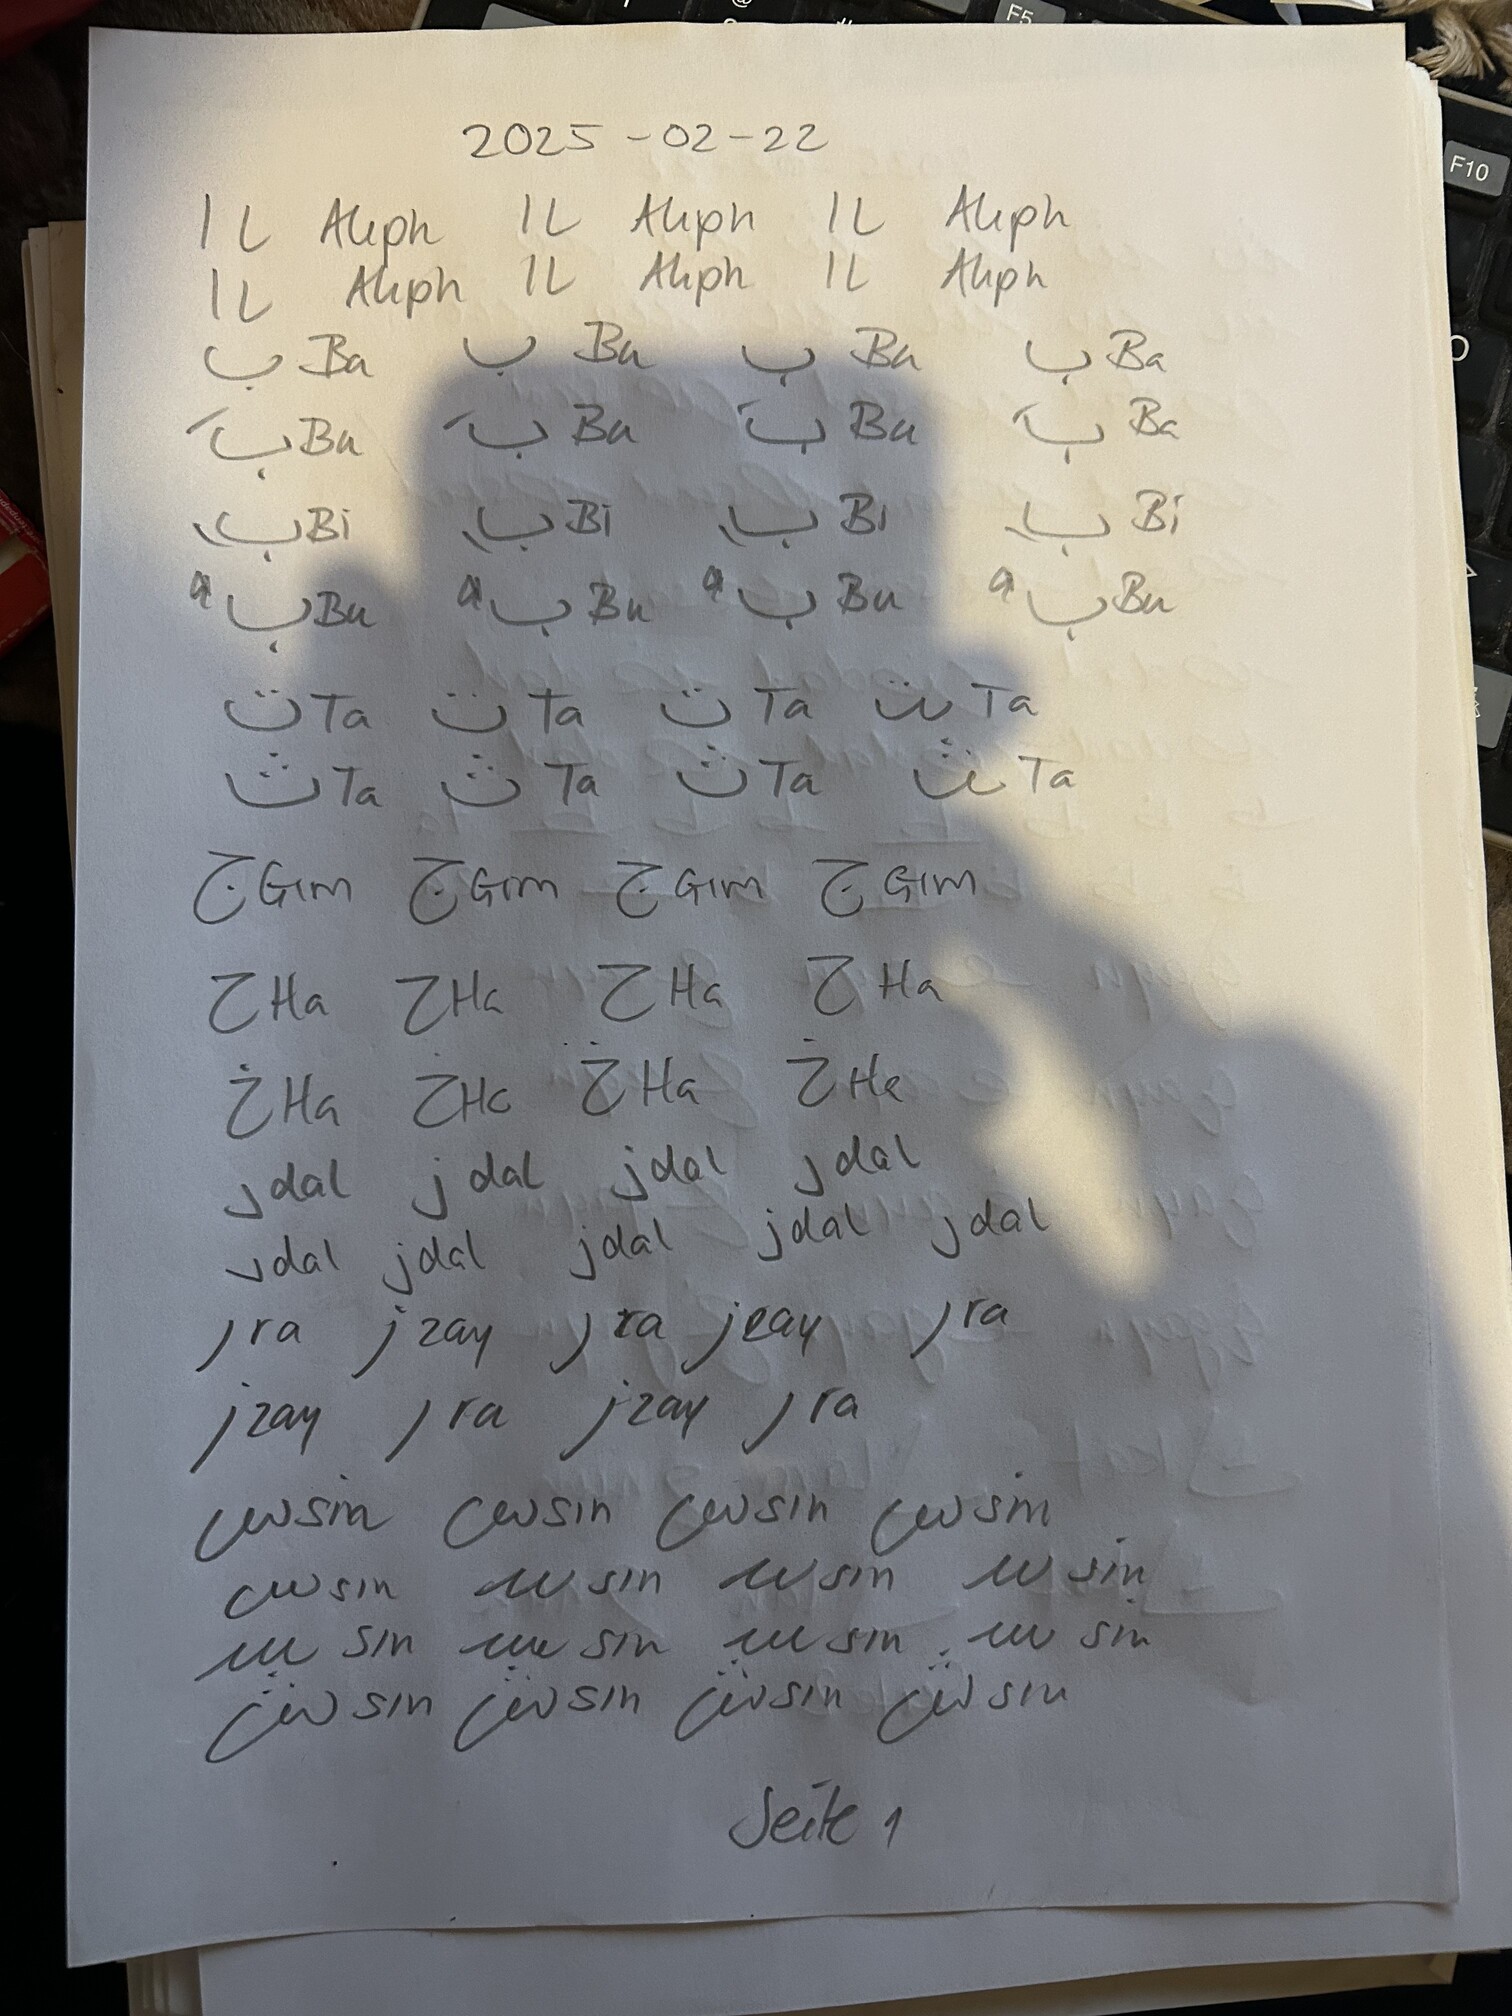 2025-02-22
ا L Aliph ا L Aliph ا L Aliph
ا L Aliph ا L Aliph ا L Aliph
ب Ba ب Ba ب Ba ب Ba
بَ Ba بَ Ba بَ Ba بَ Ba
بِ Bi بِ Bi بِ Bi بِ Bi
بُ Bu بُ Bu بُ Bu بُ Bu
ت Ta ت Ta ت Ta ت Ta
ث Ta ث Ta ث Ta ث Ta
ج Gim ج Gim ج Gim ج Gim
ح Ha ح Ha ح Ha ح Ha
خ Ha خ Ha خ Ha خ Ha
د dal ذ dal ذ dal د dal
د dal ذ dal ذ dal ذ dal د dal
ر ra ز zay ر ra ز zay ر ra
ز zay ر ra ز zay ر ra
س sin س sin س sin س sin
س sin سـ sin سـ sin سـ sin
sin sin sin sin
ش sin ش sin ش sin ش sin
Seite 1
F5
F10